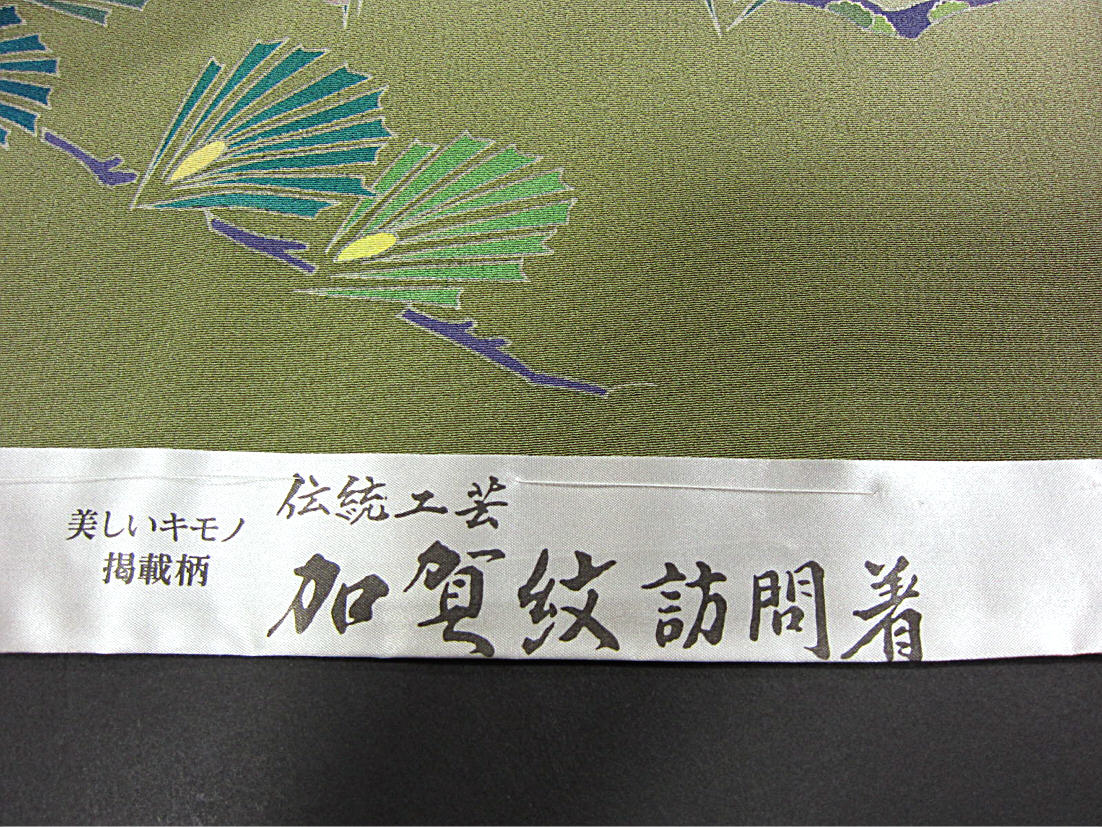 美しいキモノ
掲載柄
伝統工芸
加賀紋訪問着